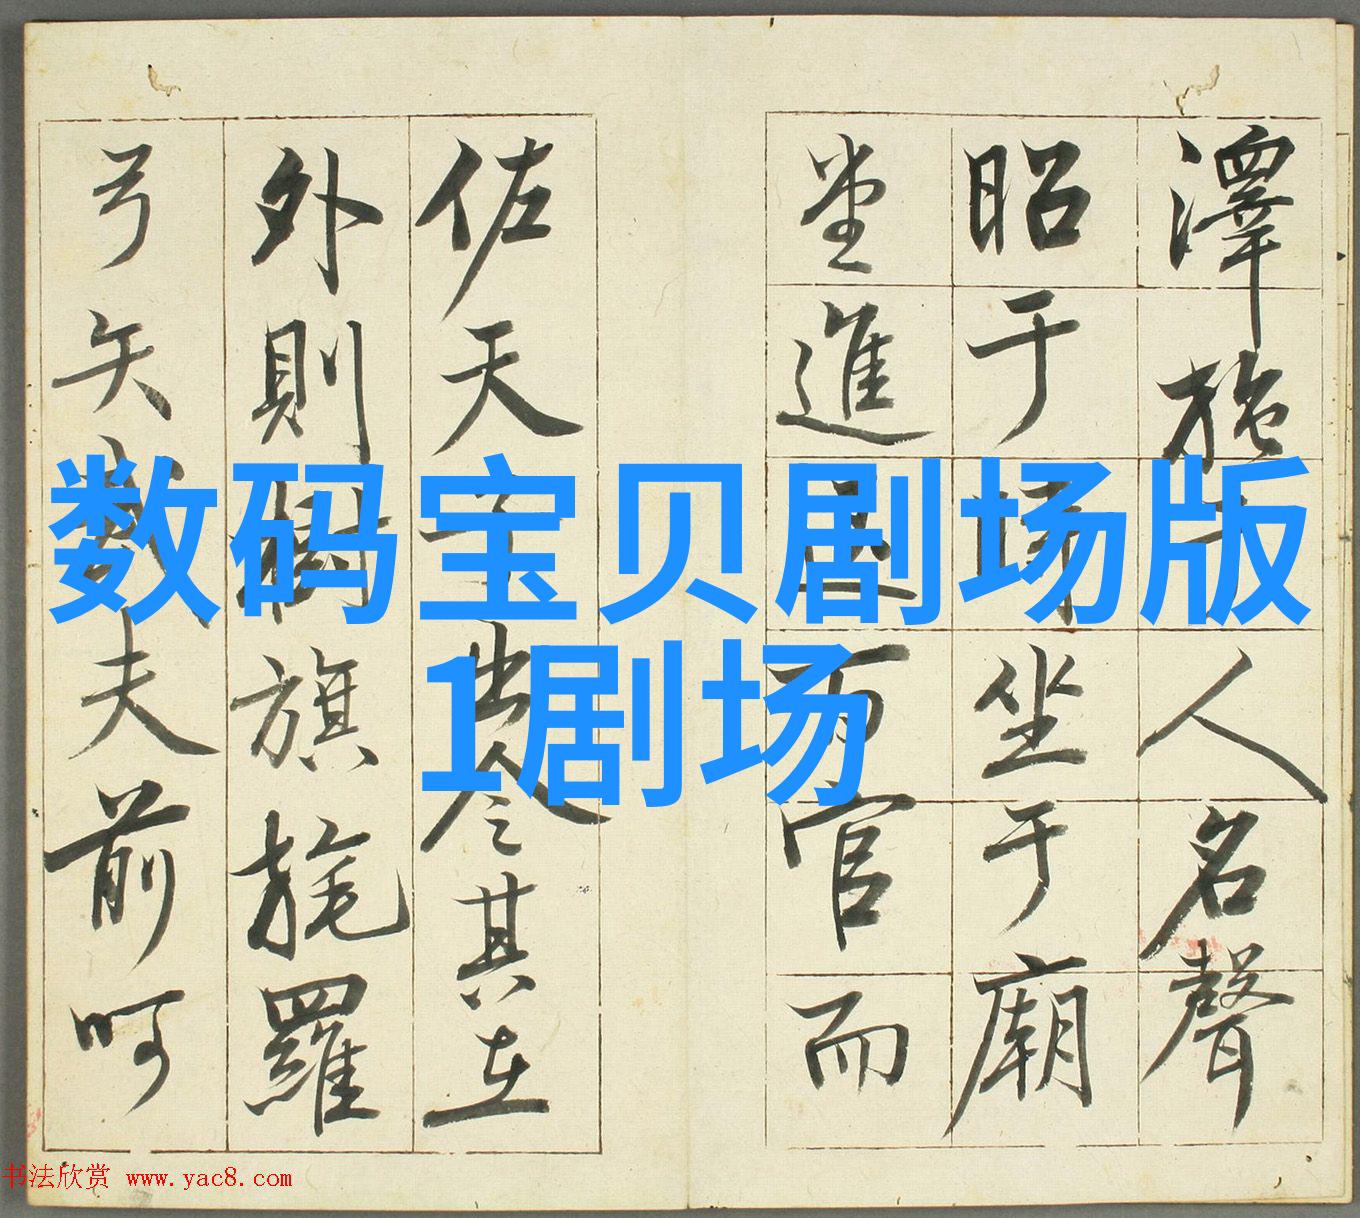 澤施人名聲
昭于坐于廟
堂進百官而
佐天出令其在
外則樹旗旄羅
弓矢夫前呵
数码宝贝剧场版
1剧场
书法欣赏 www.yac8.com